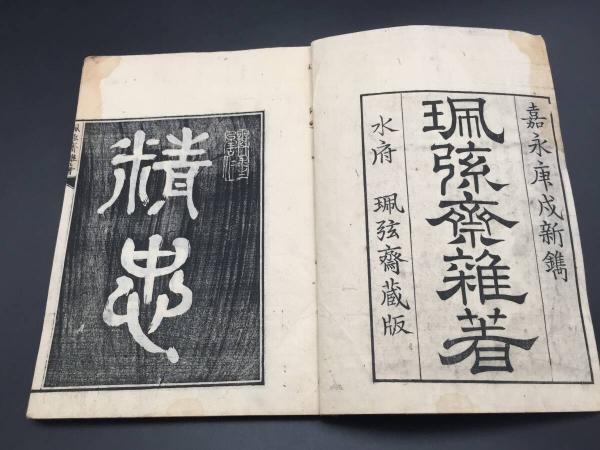 嘉永庚戌新鐫
珮弦齋雜著
水府　珮弦齋蔵版
精忠